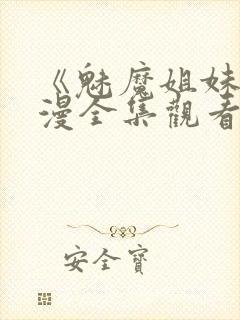 《魅魔姐妹
漫全集觀看
安全寶